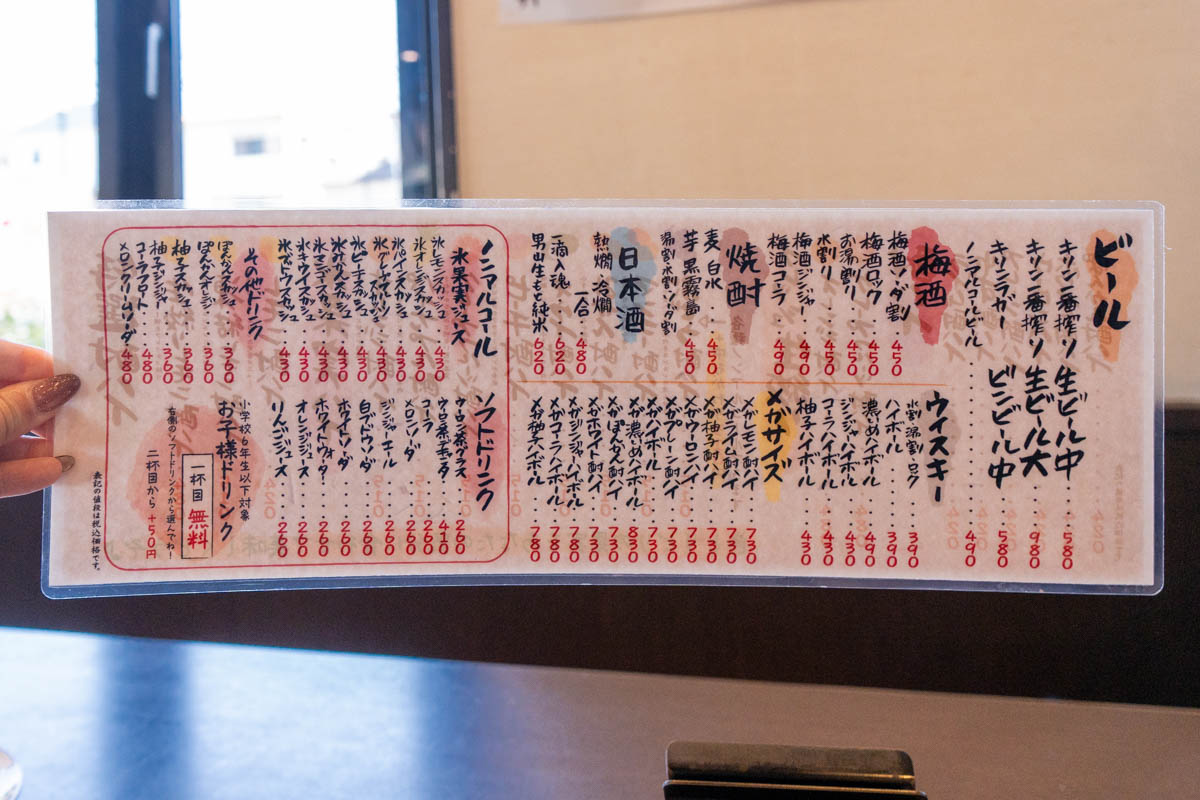 ビール
キリン一番搾り 生ビール中 580
キリン一番搾り 生ビール大 980
キリンラガー ビンビール中 580
ノンアルコールビール 490
梅酒
梅酒ソーダ割 450
梅酒ロック 450
お湯割り 450
水割り 450
梅酒ジンジャー 490
梅酒コーラ 490
焼酎
麦 白水 450
芋 黒霧島 450
湯割 水割 ソーダ割
日本酒
熱燗 冷燗
一合 480
一滴入魂 620
男山生もと純米 620
ウイスキー
水割 湯割 ロック 390
ハイボール 390
濃いめハイボール 490
ジンジャーハイボール 430
コーラハイボール 430
柚子ハイボール 430
メガサイズ
メガレモン酎ハイ 730
メガライム酎ハイ 730
メガ柚子酎ハイ 730
メガウーロンハイ 730
メガプレーン酎ハイ 730
メガハイボール 730
メガ濃いめハイボール 850
メガぽんかん酎ハイ 730
メガホワイト酎ハイ 730
メガジンジャーハイボール 780
メガコーラハイボール 780
メガ柚子ハイボール 780
ノンアルコール
氷果実ジュース
氷レモンスカッシュ 430
氷オレンジスカッシュ 430
氷パインスカッシュ 430
氷グレープフルーツスカッシュ 430
氷ピーチスカッシュ 430
氷みかんスカッシュ 430
氷マンゴースカッシュ 430
氷キウイスカッシュ 430
氷ブドウスカッシュ 430
その他ドリンク
ぽんかんスカッシュ 360
ぽんかんオレンジ 360
柚子スカッシュ 360
柚子ジンジャー 360
コーラフロート 480
メロンクリームソーダ 480
ソフトドリンク
ウーロン茶グラス 260
ウーロン茶デキャンタ 410
コーラ 260
メロンソーダ 260
ジンジャーエール 260
白ブドウソーダ 260
ホワイトソーダ 260
ホワイトウォーター 260
オレンジジュース 260
りんごジュース 260
小学校6年生以下対象
お子様ドリンク
一杯目 無料
右側のソフトドリンクから選んでね!
二杯目から +50円
表記の値段は税込価格です。